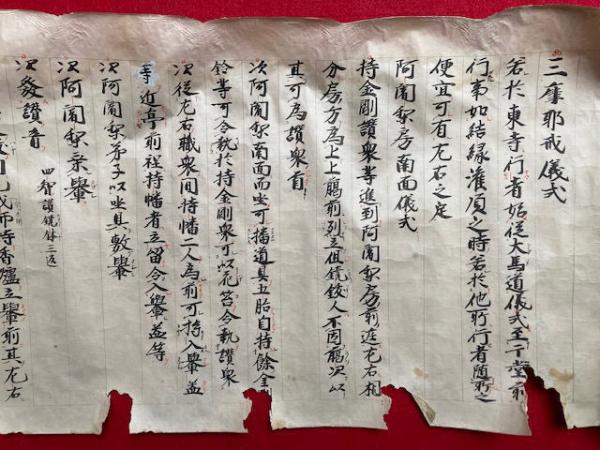 三摩耶戒儀式
若於東寺行者始従大馬道儀式至于堂前
行事如結縁灌頂之時若於他所行者随所之
便宜可有左右之定
阿闍梨房南面儀式
持金剛讃衆等進到阿闍梨房前近左右相
分房方為上上臈前列立但鐃鈸人不因臈次以
其可為讃衆首
次阿闍梨南面而坐可播道具五胎自持餘金剛
鈴等可令執於持金剛衆可以花筥令執讃衆
次従左右職衆間持幡二人為前可持入轝蓋
等近亭前程持幡者立留令入轝蓋等
次阿闍梨弟子以坐具敷轝
次阿闍梨乗轝
次發讃音 四智讃鐃鈸三返
香爐立轝前其左右